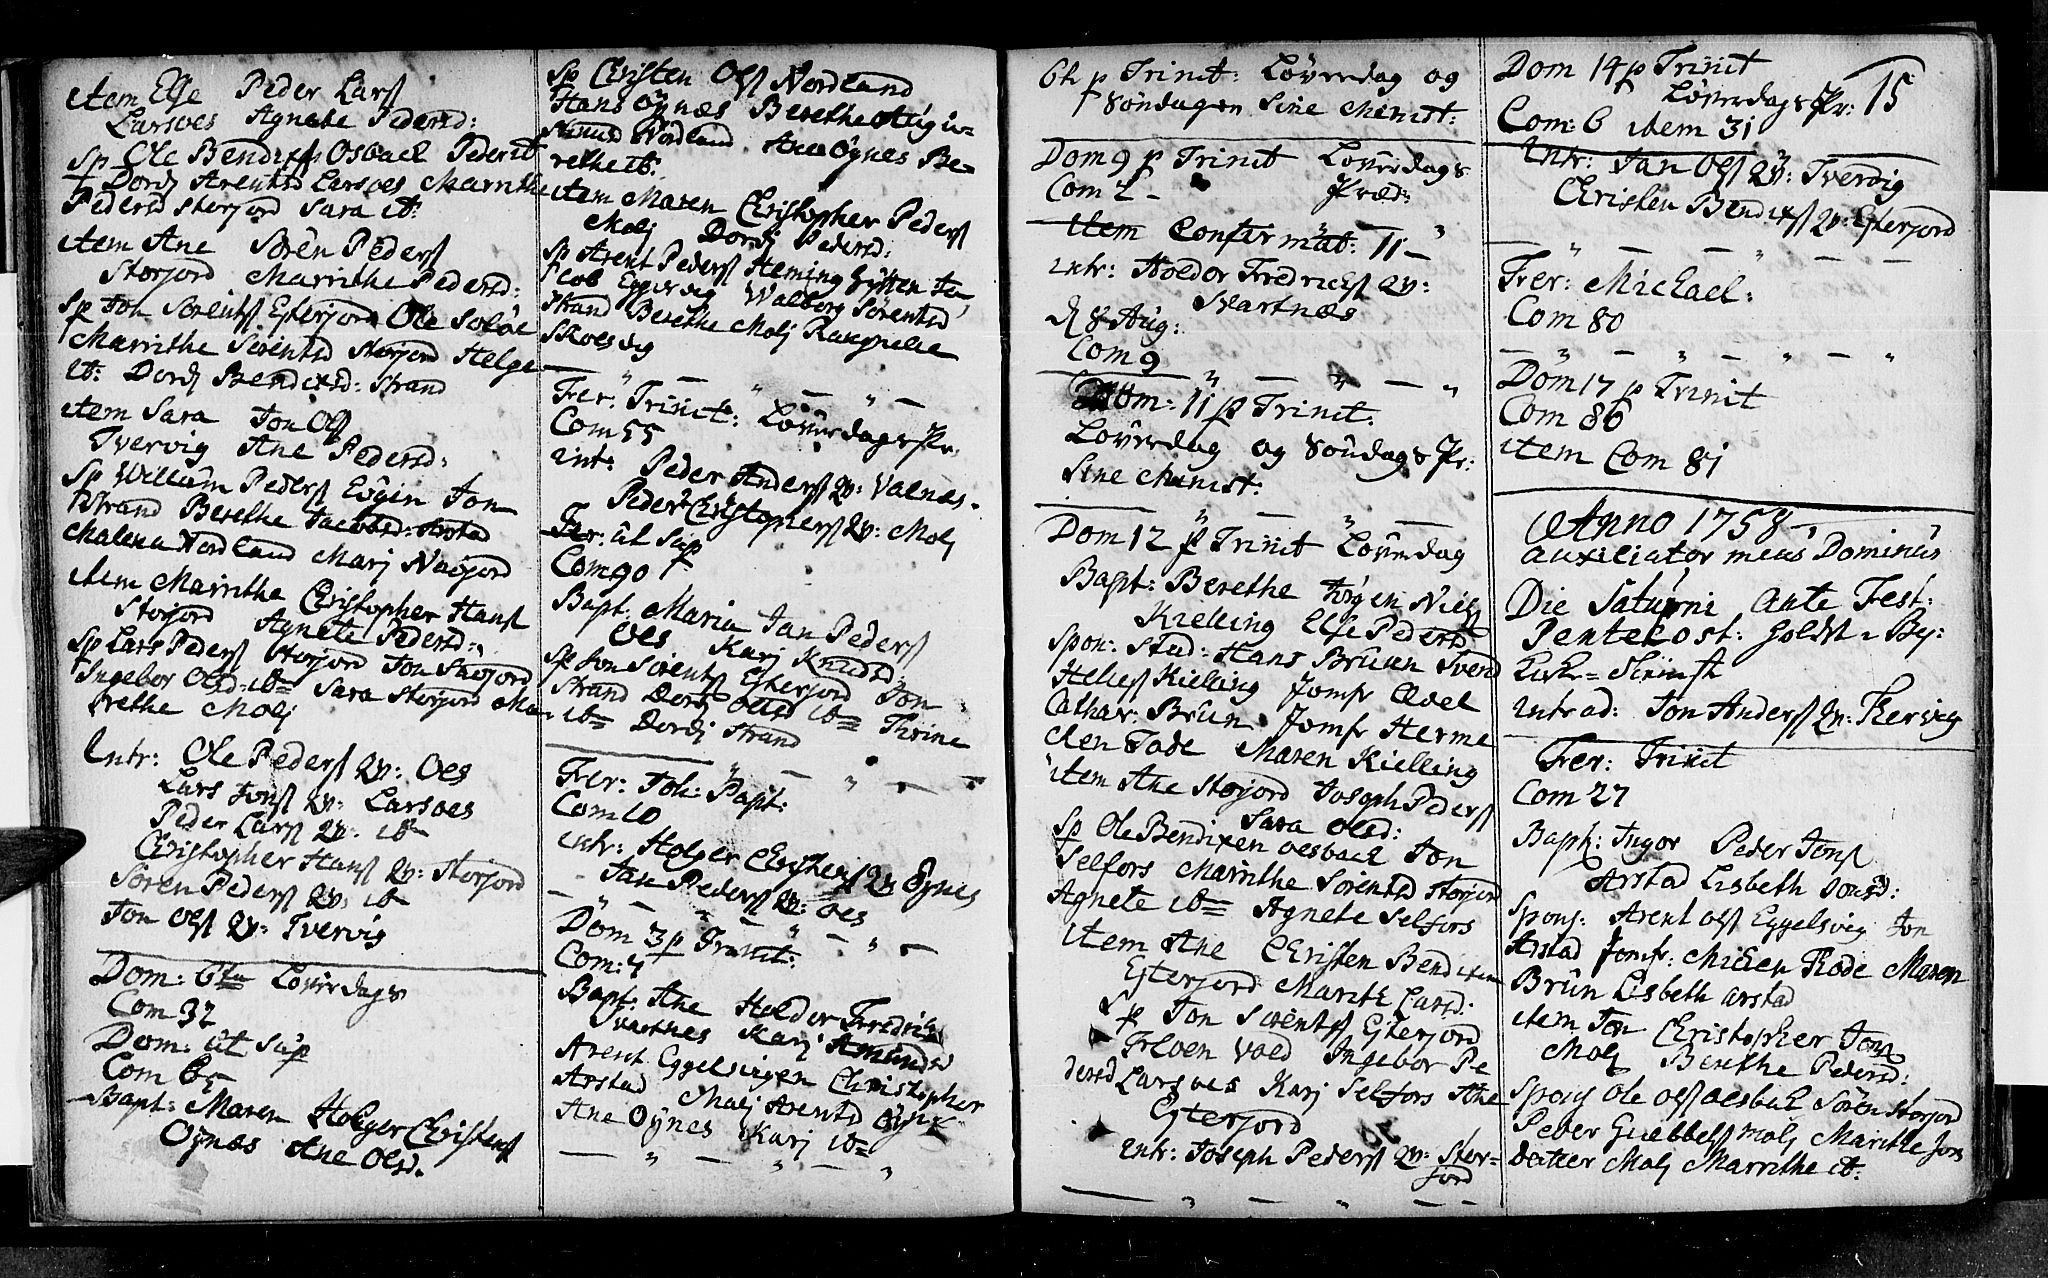 item Else Peder Lars
Larsoes Agnete Pedersd:
Sp Ole Bendixs Osbach Peder it
Dordj Arentsd Larsoes Marrithe
Pedersd Storjord Sara it:
item Ane Sören Peders
Storjord Marrithe Pedersd:
Sp Jon Sorents Esterjord Ole Soløe
Marrithe Sorentsd Storjord Helge
it: Dordj Bendixsd: Strand
item Sara Jon Ols
Tvervig Ane Pedersd:
Sp Willum Peders Jon
Strand Berethe Jacobsd: Arstad
Malena Nordland Marj Naojord
item Marrithe Christopher Hans
Storjord Agnete Pedersd:
Sp Lars Peders Storjord Jon
Ingebor Olsd: ibm Sara Storjord Ma-
rethe Molj
Intr: Ole Peders Qv: Oes
Lars Jons Qv: Larsoes
Peder Lars Qv: ibm
Christopher Hans Qv: Storjord
Sören Peders Qv: ibm
Jon Ols Qv: Tvervig
Dom: 6ta Löverdags
Com 32
Dom: ut sup
Com 65
Bapt: Maren Holger Christens
Oÿnæs Ane Olsd.
Sp Christen Ols Nordland
Hans Oÿnæs Berethe
Nordland Ane Oÿnes Be-
rethe it:
item Maren Christopher Peders
Molj Dordj Pedersd:
Sp Arent Peders Heming Ja-
cob Eggesvig Walborg Sørentsd
Strand Berethe Molj Raegnelie
Skoesvig
Fer: Trinit: Löverdags Pr.
Com 55
intr: Peder Anders Qv: Valnæs.
Peder Christophers Qv: Molj
Fer: ut sup
Com 90
Bapt. Maria Jan Peders
Oes Karj Knudsd
Sp Jon Sorents Esterjord Jon
Strand Dordj Olsd ibm Thrine
ibm Dordj Strand
Fer: Joh: Bapt:
Com 10
intr: Holger Christens Qv Oÿnes
Jan Peders Qv: Oes
Dom 3 p Trinit:
Com: 4
Bapt: Ane Holdor Fredrichs
Svartnes Karj Amundsd
Arent Eggelsvigen Christopher
Arstad Molj Arentsd Oÿnæs
Ane Oÿnes Karj ibm
6te p Trinit: Löverdag og
Söndagen Sine Minist:
Dom 9 p Trinit Löverdags
Com 2 - Præd:
item Confirmat: 11 -
intr: Holdor Fredrichs Qv:
Svartnæs
d 8 Aug:
Com 9
Dom: 11 p Trinit:
Löverdag og Söndags Pr:
Sine Minist:
Dom 12 p Trinit Löverdag
Bapt: Berethe Jörgen Niels
Kielling Else Pedersd
Spon: Stud: Hans Bruun Svend
Kielling Jomfr Edel
Cathar: Brun Jomfr Herme
Maren Kielling
item Ane Storjord Joseph Peders
Sara Olsd:
Sp Ole Bendixen Oesbach Jon
Selfors Marrithe Sorentsd Storjord
Agnete ibm Agnete Selfors
item Ane Christen Bendixen
Esterjord Marith Larsd:
Sp Jon Sorents Esterjord
Ingebor Pe
dersd Larsoes Karj Selfors Ane
Esterjord
intr: Joseph Peders Qv: Stor-
jord
Dom 14 p Trinit
Löverdags Pr: 15
Com: 6 item 31
Intr: Jan Ols Qv: Tvervig
Christen Bendixs Qv: Esterjord
Fer: Michael:
Com 80
Dom 17 p Trinit
Com 86
item Com 81
Anno 1758
auxiliator meus Dominus
Die Saturni Ante Fest:
Pentecost: holdt i Bej:
Kirke
Introd: Jon Anders Qv: Tvervig
Fer: Trinit
Com 27
Bapt: Inger Peder Jons
Arstad Lisbeth Jonsd:
Spons: Arent Ols Eggelsvig Jon
Arstad Jomfr: Michen Maren
Brun Lisbeth Arstad
item Jon Christopher Jons
Molj Berethe Pedersd:
Spons Ole Ols Oesbach Sören Storjord
Peder Molj Marithe Jons
datter Molj Marrithe it: